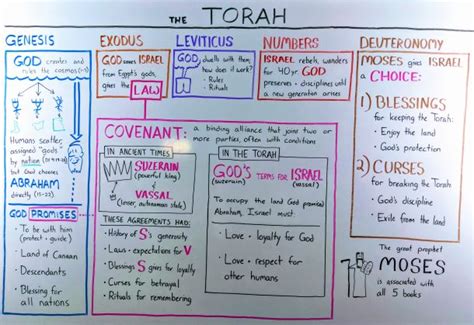 THE TORAH
GENESIS
GOD creates and
rules the cosmos (1-11)
Humans scatter,
assigned "gods"
by nation (10-11)
but God chooses
ABRAHAM
directly (11-22)
GOD PROMISES
• To be with him
(protect + guide)
• Land of Canaan
• Descendants
• Blessing for
all nations
EXODUS
GOD saves ISRAEL
from Egypt's gods,
gives the LAW
LEVITICUS
GOD dwells with them,
how does it work?
- Rules
- Rituals
NUMBERS
ISRAEL rebels, wanders
for 40 yr. GOD
preserves + disciplines until
a new generation arises
COVENANT: a binding alliance that joins two or
more parties, often with conditions
IN ANCIENT TIMES
SUZERAIN
(powerful king)
VASSAL
(lesser, autonomous state)
THESE AGREEMENTS HAD:
• History of S's generosity
• Laws + expectations for V
• Blessings S gives for loyalty
• Curses for betrayal
• Rituals for remembering
IN THE TORAH
GOD'S TERMS FOR ISRAEL
(suzerain) (vassal)
To occupy the land God promised
Abraham, Israel must:
• Love + loyalty for God
• Love + respect for
other humans
DEUTERONOMY
MOSES gives ISRAEL
a CHOICE:
1) BLESSINGS
for keeping the Torah:
- Enjoy the land
- God's protection
2) CURSES
for breaking the Torah
- God's discipline
- Exile from the land
The great prophet
MOSES
is associated with
all 5 books